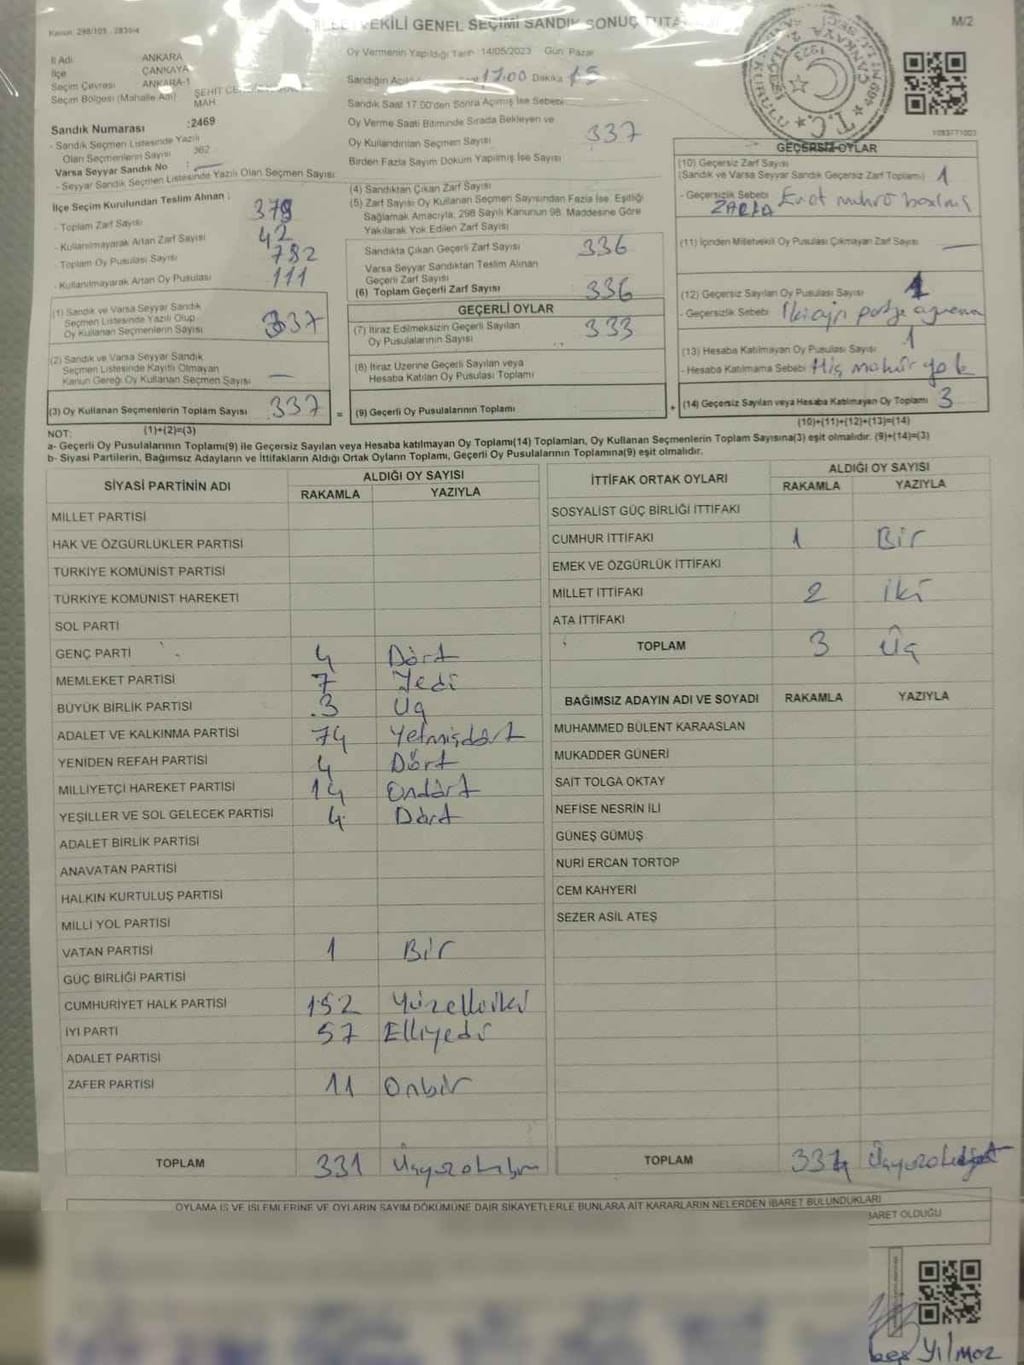 Kanun: 298/105 - 2839/4
M/2
VEKİLİ GENEL SEÇİMİ SANDIK SONUÇ TUTA
İl Adı ANKARA
İlçe ÇANKAYA
Seçim Çevresi ANKARA-1
Seçim Bölgesi (Mahalle Adı) ŞEHİT
MAH.
Oy Vermenin Yapıldığı Tarih :14/05/2023 Gün: Pazar
Sandığın Açıl 17.00 Dakika 15
Sandık Saat 17.00'den Sonra Açılmış İse Sebebi
Oy Verme Saati Bitiminde Sırada Bekleyen ve
Oy Kullandırılan Seçmen Sayısı 337
Birden Fazla Sayım Döküm Yapılmış İse Sayısı
Sandık Numarası :2469
- Sandık Seçmen Listesinde Yazılı
Olan Seçmenlerin Sayısı 362
Varsa Seyyar Sandık No : —
- Seyyar Sandık Seçmen Listesinde Yazılı Olan Seçmen Sayısı
İlçe Seçim Kurulundan Teslim Alınan :
- Toplam Zarf Sayısı 379
- Kullanılmayarak Artan Zarf Sayısı 42
- Toplam Oy Pusulası Sayısı 782
- Kullanılmayarak Artan Oy Pusulası 111
(1) Sandık ve Varsa Seyyar Sandık
Seçmen Listesinde Yazılı Olup
Oy Kullanan Seçmenlerin Sayısı 337
(2) Sandık ve Varsa Seyyar Sandık
Seçmen Listesinde Kayıtlı Olmayan
Kanun Gereği Oy Kullanan Seçmen Sayısı —
(3) Oy Kullanan Seçmenlerin Toplam Sayısı 337 =
(4) Sandıktan Çıkan Zarf Sayısı
(5) Zarf Sayısı Oy Kullanan Seçmen Sayısından Fazla ise, Eşitliği
Sağlamak Amacıyla, 298 Sayılı Kanunun 98. Maddesine Göre
Yakılarak Yok Edilen Zarf Sayısı
Sandıkta Çıkan Geçerli Zarf Sayısı 336
Varsa Seyyar Sandıktan Teslim Alınan
Geçerli Zarf Sayısı
(6) Toplam Geçerli Zarf Sayısı 336
GEÇERLİ OYLAR
(7) İtiraz Edilmeksizin Geçerli Sayılan
Oy Pusulalarının Sayısı 333
(8) İtiraz Üzerine Geçerli Sayılan veya
Hesaba Katılan Oy Pusulası Toplamı
(9) Geçerli Oy Pusulalarının Toplamı +
1093771003
GEÇERSİZ OYLAR
(10) Geçersiz Zarf Sayısı
(Sandık ve Varsa Seyyar Sandık Geçersiz Zarf Toplamı) 1
- Geçersizlik Sebebi
ZARFA Evet mührü basılmış
(11) İçinden Milletvekili Oy Pusulası Çıkmayan Zarf Sayısı —
(12) Geçersiz Sayılan Oy Pusulası Sayısı 1
- Geçersizlik Sebebi İki ayrı
(13) Hesaba Katılmayan Oy Pusulası Sayısı 1
- Hesaba Katılmama Sebebi Hiç mühür yok
(14) Geçersiz Sayılan veya Hesaba Katılmayan Oy Toplamı 3
NOT: (1)+(2)=(3)
(10)+(11)+(12)+(13)=(14)
a- Geçerli Oy Pusulalarının Toplamı(9) ile Geçersiz Sayılan veya Hesaba katılmayan Oy Toplamı(14) Toplamları, Oy Kullanan Seçmenlerin Toplam Sayısına(3) eşit olmalıdır. (9)+(14)=(3)
b- Siyasi Partilerin, Bağımsız Adayların ve İttifakların Aldığı Ortak Oyların Toplamı, Geçerli Oy Pusulalarının Toplamına(9) eşit olmalıdır.
SİYASİ PARTİNİN ADI
ALDIĞI OY SAYISI
RAKAMLA YAZIYLA
MİLLET PARTİSİ
HAK VE ÖZGÜRLÜKLER PARTİSİ
TÜRKİYE KOMÜNİST PARTİSİ
TÜRKİYE KOMÜNİST HAREKETİ
SOL PARTİ
GENÇ PARTİ 4 Dört
MEMLEKET PARTİSİ 7 Yedi
BÜYÜK BİRLİK PARTİSİ 3 Üç
ADALET VE KALKINMA PARTİSİ 74 Yetmişdört
YENİDEN REFAH PARTİSİ 4 Dört
MİLLİYETÇİ HAREKET PARTİSİ 14 Ondört
YEŞİLLER VE SOL GELECEK PARTİSİ 4 Dört
ADALET BİRLİK PARTİSİ
ANAVATAN PARTİSİ
HALKIN KURTULUŞ PARTİSİ
MİLLİ YOL PARTİSİ
VATAN PARTİSİ 1 Bir
GÜÇ BİRLİĞİ PARTİSİ
CUMHURİYET HALK PARTİSİ 152 Yüzelliiki
İYİ PARTİ 57 Elliyedi
ADALET PARTİSİ
ZAFER PARTİSİ 11 Onbir
TOPLAM 331 Üçyüzotuzbir
İTTİFAK ORTAK OYLARI
ALDIĞI OY SAYISI
RAKAMLA YAZIYLA
SOSYALİST GÜÇ BİRLİĞİ İTTİFAKI
CUMHUR İTTİFAKI 1 Bir
EMEK VE ÖZGÜRLÜK İTTİFAKI
MİLLET İTTİFAKI 2 iki
ATA İTTİFAKI
TOPLAM 3 Üç
BAĞIMSIZ ADAYIN ADI VE SOYADI RAKAMLA YAZIYLA
MUHAMMED BÜLENT KARAASLAN
MUKADDER GÜNERİ
SAİT TOLGA OKTAY
NEFİSE NESRİN İLİ
GÜNEŞ GÜMÜŞ
NURİ ERCAN TORTOP
CEM KAHYERİ
SEZER ASİL ATEŞ
TOPLAM 334 Üçyüzotuzdört
OYLAMA İŞ VE İŞLEMLERİNE VE OYLARIN SAYIM DÖKÜMÜNE DAİR ŞİKAYETLERLE BUNLARA AİT KARARLARIN NELERDEN İBARET BULUNDUKLARI
BARET OLDUĞU
Yılmaz